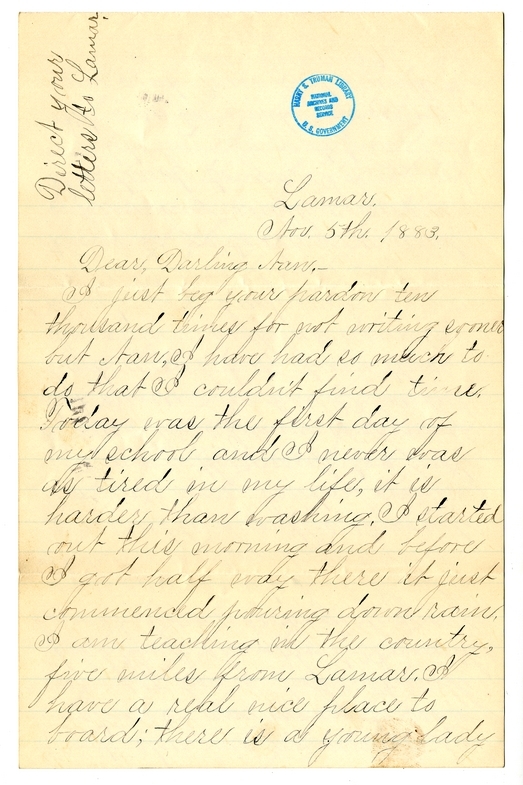 Direct your
letters to Lamar.
HARRY S. TRUMAN LIBRARY
NATIONAL
ARCHIVES AND
RECORDS
SERVICE
U. S. GOVERNMENT
Lamar.
Nov. 5th. 1883.
Dear, Darling Nan.—
I just beg your pardon ten
thousand times for not writing sooner
but Nan, I have had so much to
do that I couldn't find time.
Today was the first day of
my school and I never was
as tired in my life, it is
harder than washing. I started
out this morning and before
I got half way there it just
commenced pouring down rain.
I am teaching in the country,
five miles from Lamar. I
have a real nice place to
board; there is a young lady